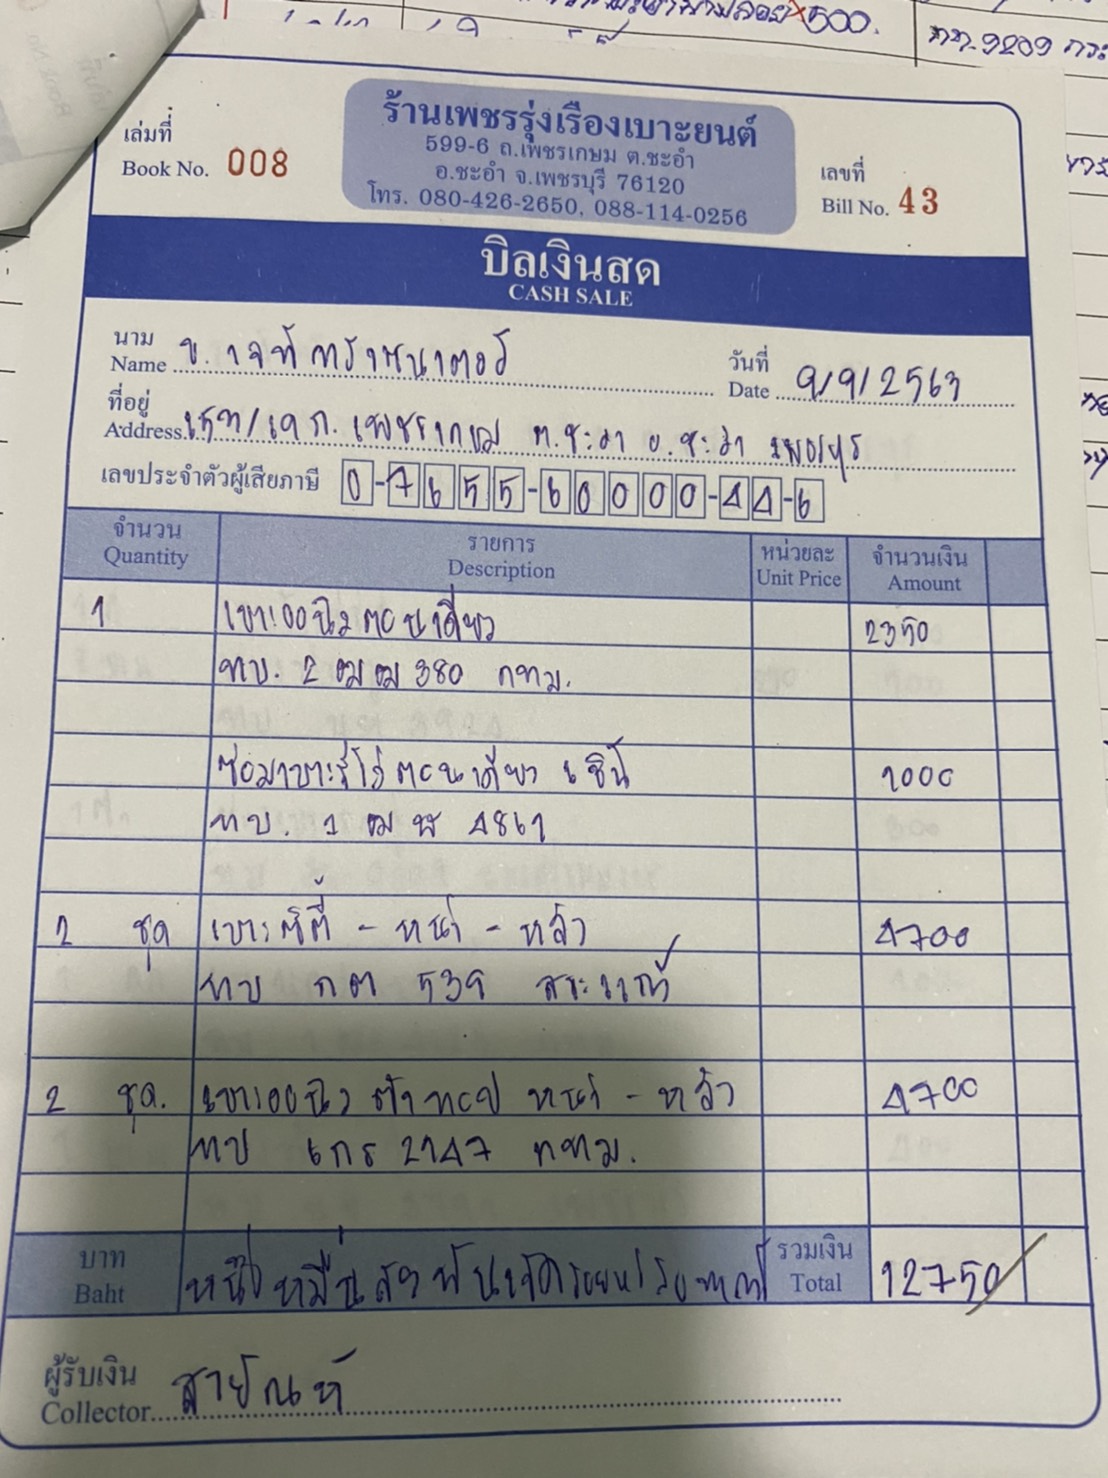 500.
ทท.9209 กระ
ร้านเพชรรุ่งเรืองเบาะยนต์
599-6 ถ.เพชรเกษม ต.ชะอำ
อ.ชะอำ จ.เพชรบุรี 76120
โทร. 080-426-2650, 088-114-0256
เล่มที่
Book No. 008
เลขที่
Bill No. 43
บิลเงินสด
CASH SALE
นาม
Name
วันที่
Date 9/9/2563
ที่อยู่
Address ถ. เพชรเกษม ต.ชะอำ อ.ชะอำ
เลขประจำตัวผู้เสียภาษี 0-7655-60000-44-6
จำนวน รายการ หน่วยละ จำนวนเงิน
Quantity Description Unit Price Amount
1 เบาะออนิวตอนเดียว 2350
ทบ. 2 ฒฒ 380 กทม.
ตอนเดียว 1000
ทบ. 1 ฒ 4861
2 ชุด เบาะซิตี้ - หน้า - หลัง 4700
ทบ กต 539 สระแก้ว
2 ชุด. หน้า - หลัง 4700
ทบ 6กร 2147 กทม.
บาท
Baht หนึ่งหมื่นสองพันเจ็ดร้อยห้าสิบบาท
รวมเงิน
Total 12750
ผู้รับเงิน
Collector สายัณห์